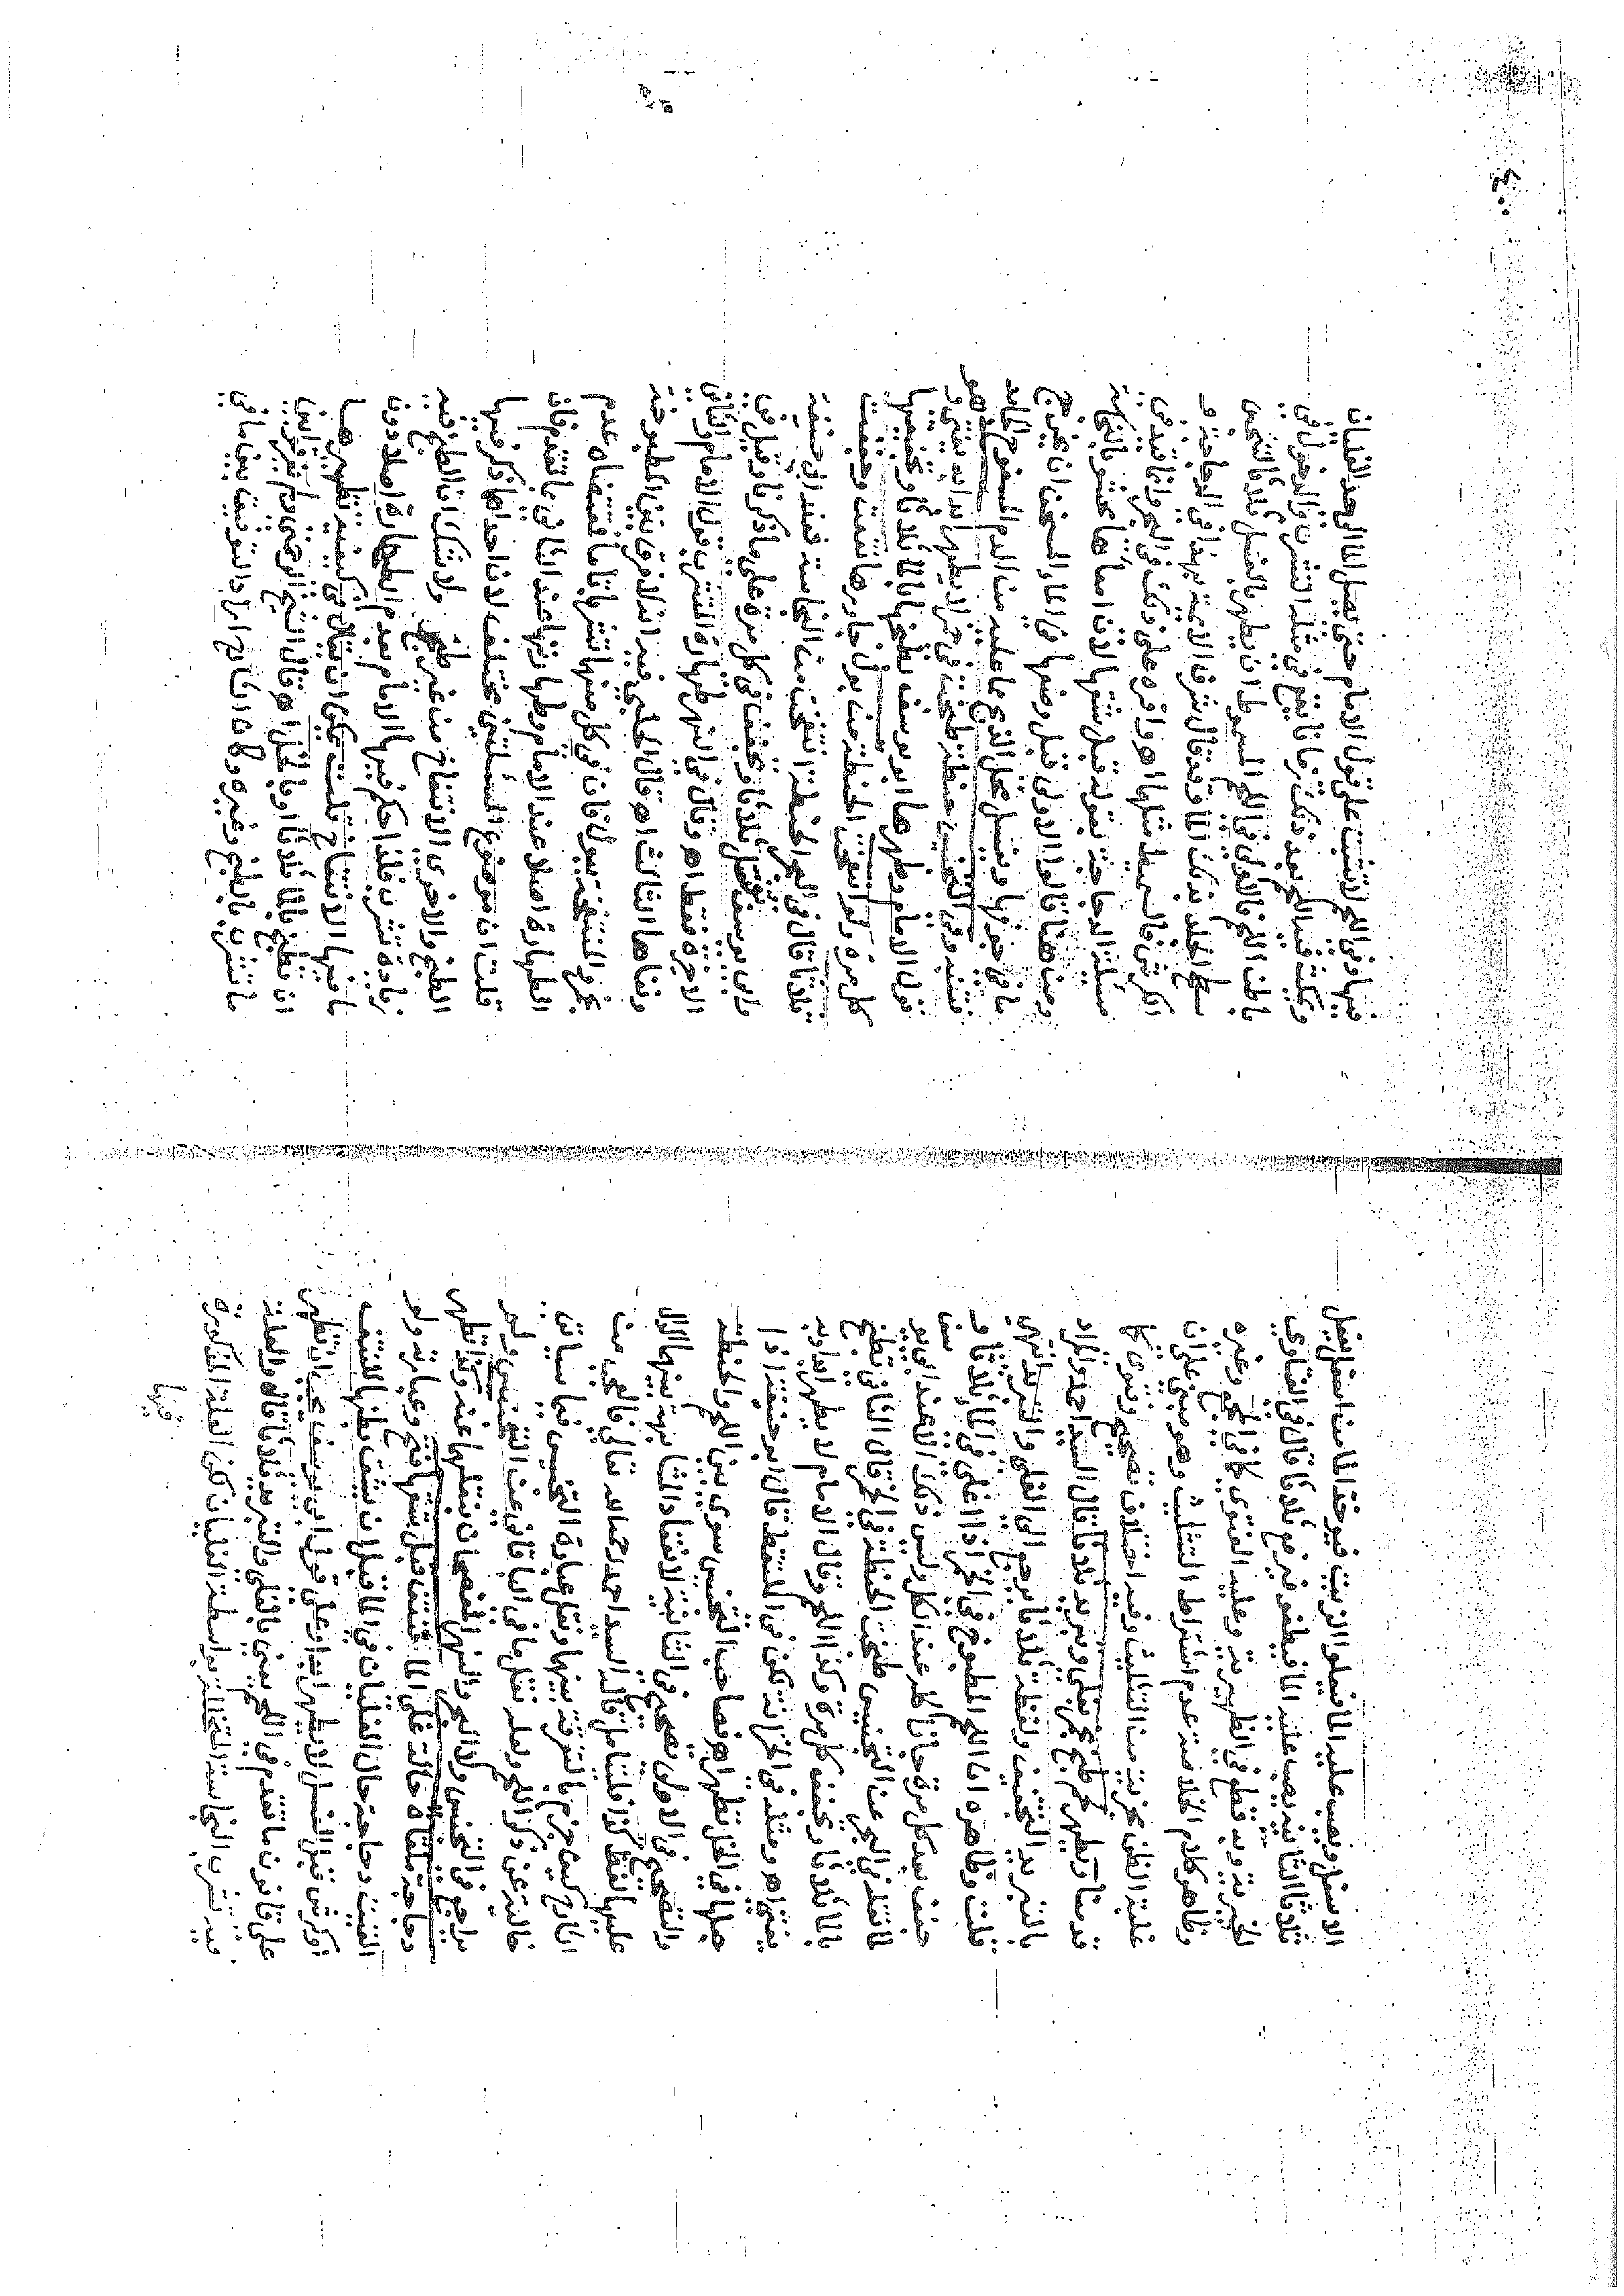 الاسفل ويصب عليه الماء فيعلو الزيت فيؤخذ الماء من اسفل يفعل
ثلاثا الثانية يصب عليه الماء فيطفو فيرفع ثلاثا قال في الفتاوى
الخيرية وبه قطع في الظهيرية وعليه الفتوى كما في المجمع وغيره
وظاهر كلام الخلاصة عدم اشتراط التثليث وهو مبني على ان
غلبة الظن مجزية عن التثليث وفيه اختلاف تصحيح وفتوى كما
قدمنا ويطهر لحم طبخ بخمر بغلي وتبريد ثلاثا قال السيد احمد والمراد
بالتبريد التجفيف ولفظة ثلاثا يرجع الى الغلي والتبريد انتهى
قلت وظاهره اما اللحم المطبوخ في الخمر اذا اغلى في الماء ثلاثا و
جفف بعد كل مرة جاز اكله عند الكل وليس ذلك الا عند ابي يوسف
لما نقله في البحر عن التجنيس طبخت الحنطة في الخمر قال الثاني تطبخ
بالماء ثلاثا وتجفف كل مرة وكذا اللحم وقال الامام لا يطهر ابدا وبه
يفتى اه ومثله في الخزانة لكن في الملتقط قال ابو حنيفة اذا
جعلها في الخل تطهر اه فصاحب التجنيس سوى بين اللحم والحنطة
والتصحيح في الاولى تصحيح في الثانية لاتحاد المشابهة بينهما الدال
عليها لفظ كذا قلنا ما قاله السيد احمد رحمه الله تعالى فالعجب من
الشارح كيف جزم بالتفرقة بينهما ونقل عبارة التجنيس فيما سياتي
في الباقي عن التجنيس ولم
يراجع في التجنيس ولا البحر والنهر
دجاجة ملقاة حالة على الماء للنتف قبل شقها فتح وعبارته ولو
القيت دجاجة حال الغليان في الماء قبل ان يشق بطنها لتنتف
او كرش قبل الغسل لا يطهر ابدا وعلى قول ابي يوسف يجب ان تطهر
على قانون ما تقدم في اللحم يعني بالغلي والتبريد ثلاثا قاله والعلة
فيه تشرب النجاسة المتخللة بواسطة الغليان لكن العلة المذكورة
فيها
فيها وفي اللحم لا تثبت على قول الامام حتى يصل الماء الى حد الغليان
ويمكث فيه اللحم بعد ذلك زمانا يقع في مثله التشرب والدخول في
باطن اللحم فالاولى في اللحم السموط ان يطهر بالغسل ثلاثا لتنجس
سطح الجلد بذلك الماء وقد قال شرف الائمة بهذا في الدجاجة و
الكرش فالسميط مثلهما اه واقره على ذلك في البحر وانما قيد في
مسئلة الدجاجة بقوله قبل شقها لان امعاءها محشو بالنجاسة
ومن هنا قالوا الاولى قبل وضعها في الماء المسخن ان يخرج
ما في جوفها ويغسل محل الذبح مما عليه من الدم المسفوح الجامد
فتنبه وفي التجنيس حنطة طبخت في خمر لا يطهر ابدا به يفتى وهو
قول الامام وطهرها ابو يوسف بطبخها بالماء ثلاثا وتجفيفها
كل مرة ولو انتفخت الحنطة من بول جاوزها نقعت وجففت
ثلاثا قال في البحر الحنطة انتفخت من النجاسة فعند ابي حنيفة
وابي يوسف تغسل ثلاثا وتجفف في كل مرة على ما ذكرنا وقيل في
الاخيرة فقط اه وقال في النهر طهارة المتشرب قول الامام والثاني
ونفاها الثالث اه قال الحلبي فيه انه لا فرق بين المطبوخة
بخمر والمنتفخة ببول فان في كل منهما تشربا تاما فمقتضاه عدم
الطهارة اصلا عند الامام وطهارتها عند الثاني بما تقدم فان
قلت ان موضوع المسئلتين مختلف لان احداهما ذكر فيها
الطبخ والاخرى الانتفاخ من غير طبخ ولا شك ان الطبخ فيه
زيادة تشرب فلذا حكم فيها الامام بعدم الطهارة اصلا دون
ما فيها الانتفاخ قلت يمكن ان يقال في كيفية تطهيرها
ان تطبخ بالماء ثلاثا او بالخل اه قال الشيخ الرحمتي فلم تفرق بين
ما تشرب بالطبخ وغيره وكان الشارح اراد التوفيق بينهما ما في